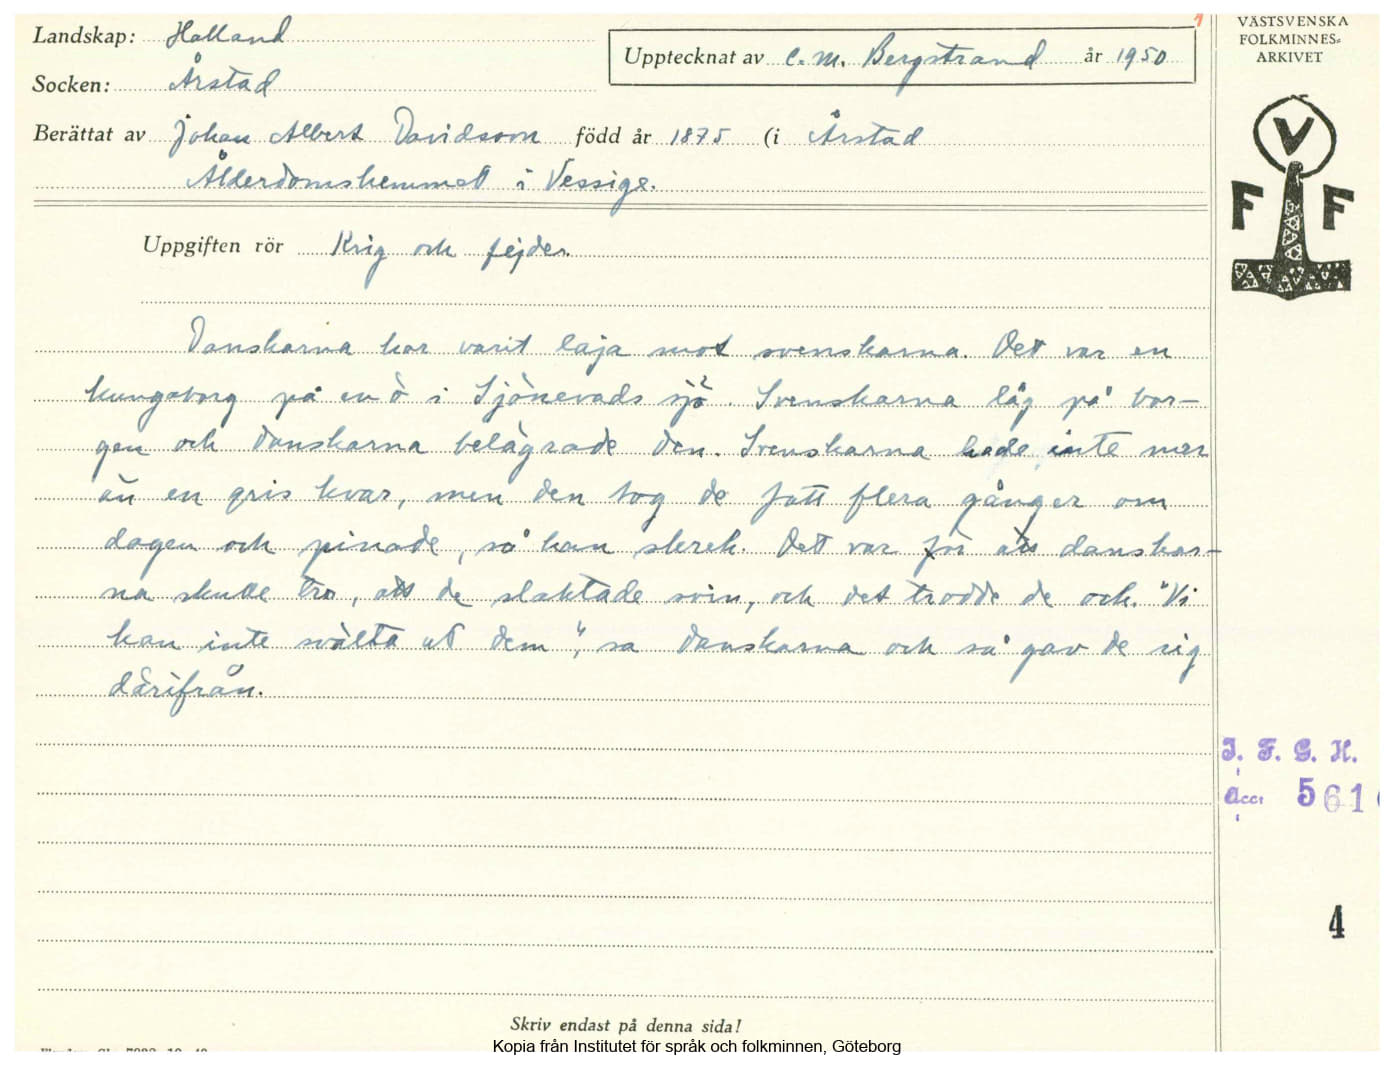 Landskap: Halland
Upptecknat av C. M. Bergstrand år 1950
VÄSTSVENSKA
FOLKMINNES-
ARKIVET
Socken: Årstad
Berättat av Johan Albert Davidsson född år 1875 (i Årstad
Ålderdomshemmet i Vessige.
V
F F
Uppgiften rör Krig och fejder.
Danskarna har varit laja mot svenskarna. Det var en
kungsborg på en ö i Sjönevads sjö. Svenskarna låg på bor-
gen och danskarna belägrade den. Svenskarna hade inte mer
än en gris kvar, men den tog de fatt flera gånger om
dagen och pinade, så han skrek. Det var för att danskar-
na skulle tro, att de slaktade svin, och det trodde de och. "Vi
kan inte svälta ut dem", sa danskarna och så gav de sig
därifrån.
I. F. G. H.
acc: 561
4
Skriv endast på denna sida!
Kopia från Institutet för språk och folkminnen, Göteborg